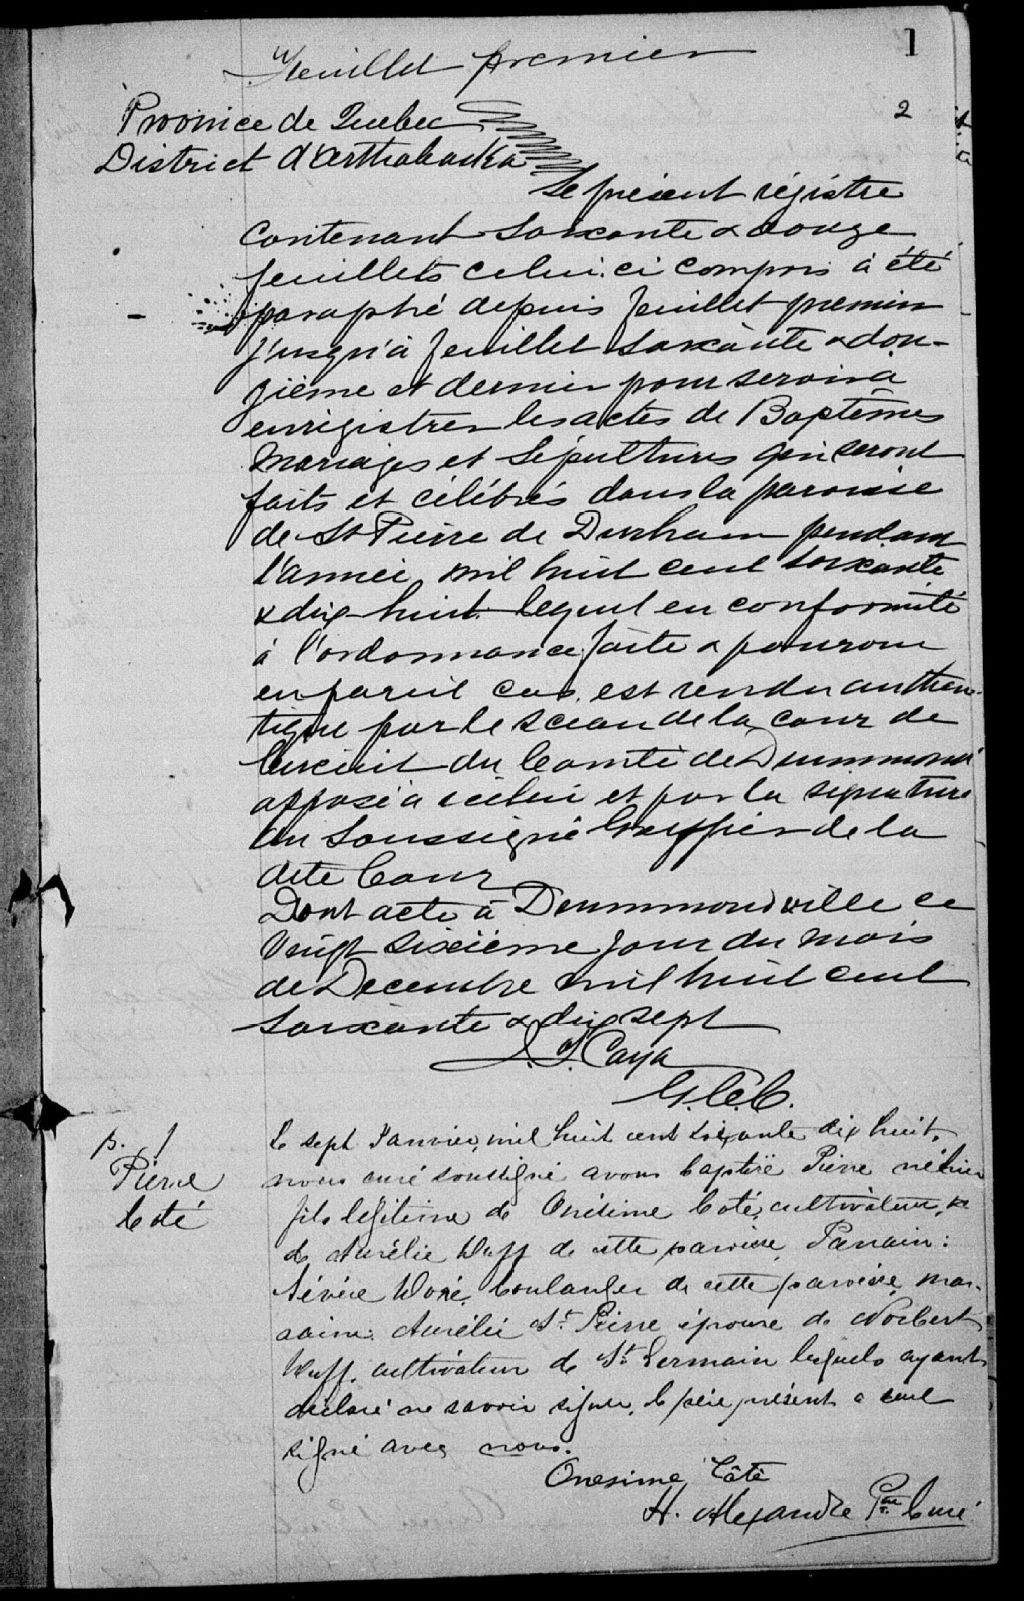 1
Feuillet premier
2
Province de Quebec
District d'Arthabaska
Le présent régistre
contenant soixante & douze
feuillets celui-ci compris à été
paraphé depuis feuillet premier
jusqu'à feuillet soixante & dou-
zième et dernier pour servir à
enrégistrer les actes de Baptêmes
Mariages et Sépultures qui seront
faits et célébrés dans la paroisse
de St Pierre de Durham pendant
l'année mil huit cent soixante
& dix huit lequel en conformité
à l'ordonnance faite & pourvue
en pareil cas est rendu authen-
tique par le sceau de la cour de
Circuit du Comté de Drummond
apposé à icelui et par la signature
du Soussigné Greffier de la
dite Cour
Dont acte à Drummondville ce
Vingt Sixième jour du mois
de Decembre mil huit cent
soixante & dix sept
J. Caya
G.C.C.
p. 1
Pierre
Coté
Le sept Janvier, mil huit cent soixante dix huit,
nous curé soussigné avons baptisé Pierre né hier
fils légitime de Onésime Coté, cultivateur, &
de Aurélie Watt de cette paroisse Parrain:
Sévère Doré, boulanger de cette paroisse, mar-
raine: Aurélie St. Pierre épouse de Norbert
Watt, cultivateur de St. Germain lesquels ayant
déclaré ne savoir signer, le père présent a seul
signé avec nous.
Onesime Côté
H. Alexandre Ptre Curé